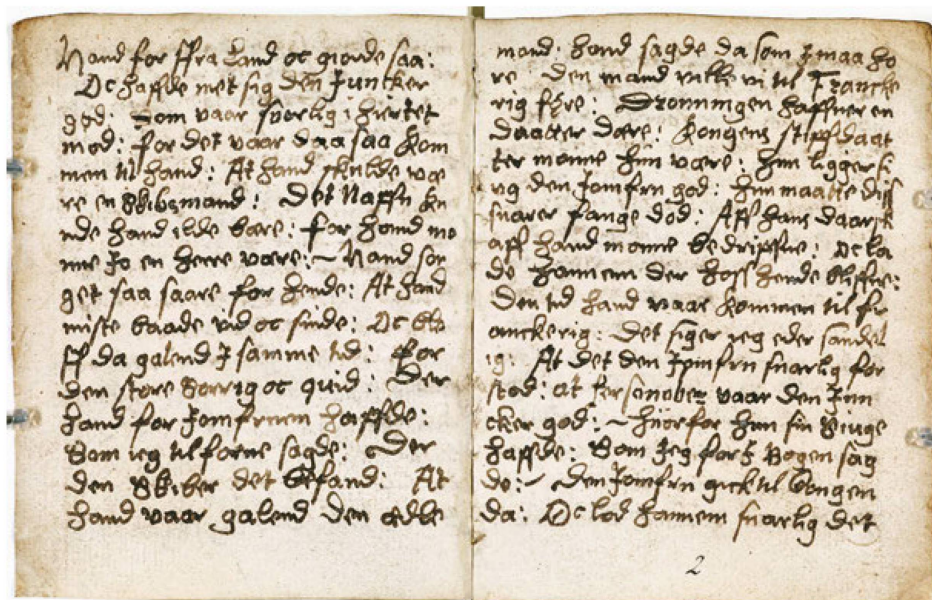 Hand for ffra Land oc giorde saa:
Oc haffde met sig den Juncker
god: Som vaar sorrig i hiertet
mod: for det vaar daa saa kom
men til hand: At hand skulde væ
re en Skibsmand: Det Naffn ku
nde hand ilde bære: for hand mo
nne Jo en herre være: ~ Hand sör
get saa saare for hende: At hand
miste baade vid oc sinde: Oc ble
ff da galend J samme tid: For
den store Sorrig oc quid: Der
hand for Jomfruen haffde:
Som ieg til forne sagde: Der
den Skiber det befand: At
hand vaar galend den ædle
mand: hand sagde da som J maa hø
re: Den mand ville vi til Francke
rig føre: Dronningen haffuer en
daatter dære: kongens stiffdaat
ter monne hun være: hun ligger si
ug den Jomfru god: hun maatte diss
snarer fange död: Aff hans daarsk
aff hand monne bedriffue: oc la
de hannem der hoss hende bliffue:
Den tid hand vaar kommen til fr
anckerig: Det siger ieg eder sandel
ig: At det den Jomfru snarlig for
stod: at Persenober vaar den Jun
cker god: ~ huorfor hun sin Siuge
haffde: Som Jeg for J Bogen sag
de: ~ den Jomfru gick til kongen
da: Oc lod hannem snarlig det
2